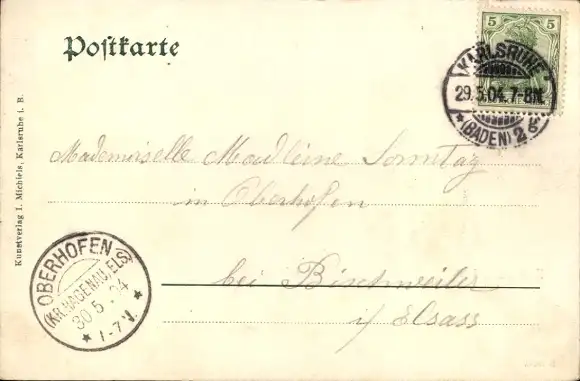 Postkarte
5 5
KARLSRUHE
29.5.04. 7-8N.
* (BADEN) 2
Mademoiselle Madleine Sonntag
in Oberhofen
bei Bischweiler
i/ Elsass
OBERHOFEN
(KR. HAGENAU ELS)
30.5.04
* 1-7 V. *
Kunstverlag I. Michiels, Karlsruhe i. B.